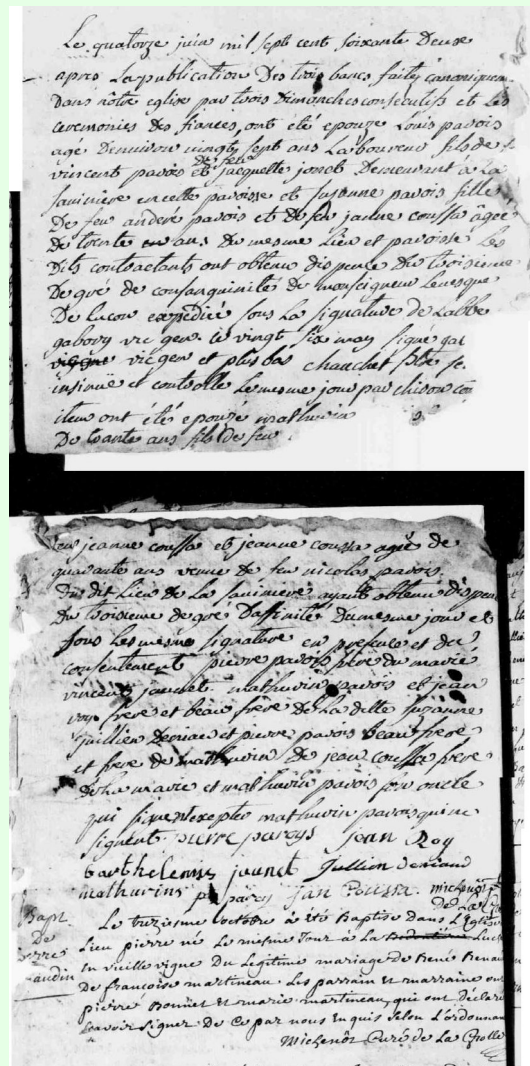 Le quatorze juin mil sept cent soixante Deux
apres La publication Des trois bancs faitte canoniquem
Dans nôtre eglise par trois Dimanches consecutifs et Les
ceremonies des fiances, ont été epouzé Louis pavois
agé Denviron vingt sept ans Laboureur fils de
vincent pavois et De feu jacquette jonet Demeurant à La
saviniere en cette paroisse et suzanne pavois fille
De feu andere pavois et De feu janne coussa âgée
De trente un ans Du mesme Lieu et paroisse Les
Dits contractants ont obtenu dispence Du troisieme
Degré de consanguinité De monseigneur Levesque
De Lucon expedié sous La signature de Labbe
gabory vic gen. le vingt six may signé gab
vic gen et plus bas chauchet
insinué et controllé Le mesme jour par chison
ont été epouzé mathurin
De trante ans fils De feu
feu jeanne coussa et jeanne coussa agée de
quarante ans veuve de feu nicolas pavois
Du dit Lieu de La saviniere ayant obtenu dispen
Du troisieme degré Daffinité Du mesme jour et
sous Les mesme signature en presence et du
consentement pierre pavois frere du marié
vincent jaunet mathurin pavois et jean
roy frere et beau frere de La ditte suzanne
jullien Deniau et pierre pavois beau frere
et frere de mathurin De jean coussa frere
De La mariée et mathurin pavois son oncle
qui signent excepter mathurin pavois qui ne
signent. pierre paroys jean Roy
barthelemy jaunet Jullien deniaud
mathurins p paroy jan Coussa michenot
de La
Bapt
De
Le treziesme octobre à été Baptise Dans L'Eglise
Lieu pierre né Le mesme Jour à La
en vieille vigne Du Legitime mariage de René Renau
De francoise martineau Les parrain et marraine on
pierre Bonnet et marie martineau, qui ont déclaré
scavoir signer De Ce par nous Enquis selon L'ordonnan
Michenot Curé de La Grolle